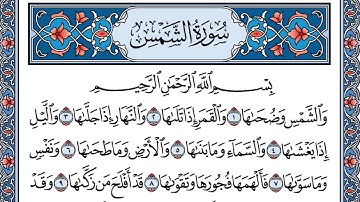 سُورَةُ الشَّمْسِ
بِسْمِ اللَّهِ الرَّحْمَٰنِ الرَّحِيمِ
وَالشَّمْسِ وَضُحَىٰهَا ١ وَالْقَمَرِ إِذَا تَلَىٰهَا ٢ وَالنَّهَارِ إِذَا جَلَّىٰهَا ٣ وَالَّيْلِ
إِذَا يَغْشَىٰهَا ٤ وَالسَّمَاءِ وَمَا بَنَىٰهَا ٥ وَالْأَرْضِ وَمَا طَحَىٰهَا ٦ وَنَفْسٍ
وَمَا سَوَّىٰهَا ٧ فَأَلْهَمَهَا فُجُورَهَا وَتَقْوَىٰهَا ٨ قَدْ أَفْلَحَ مَن زَكَّىٰهَا ٩ وَقَدْ